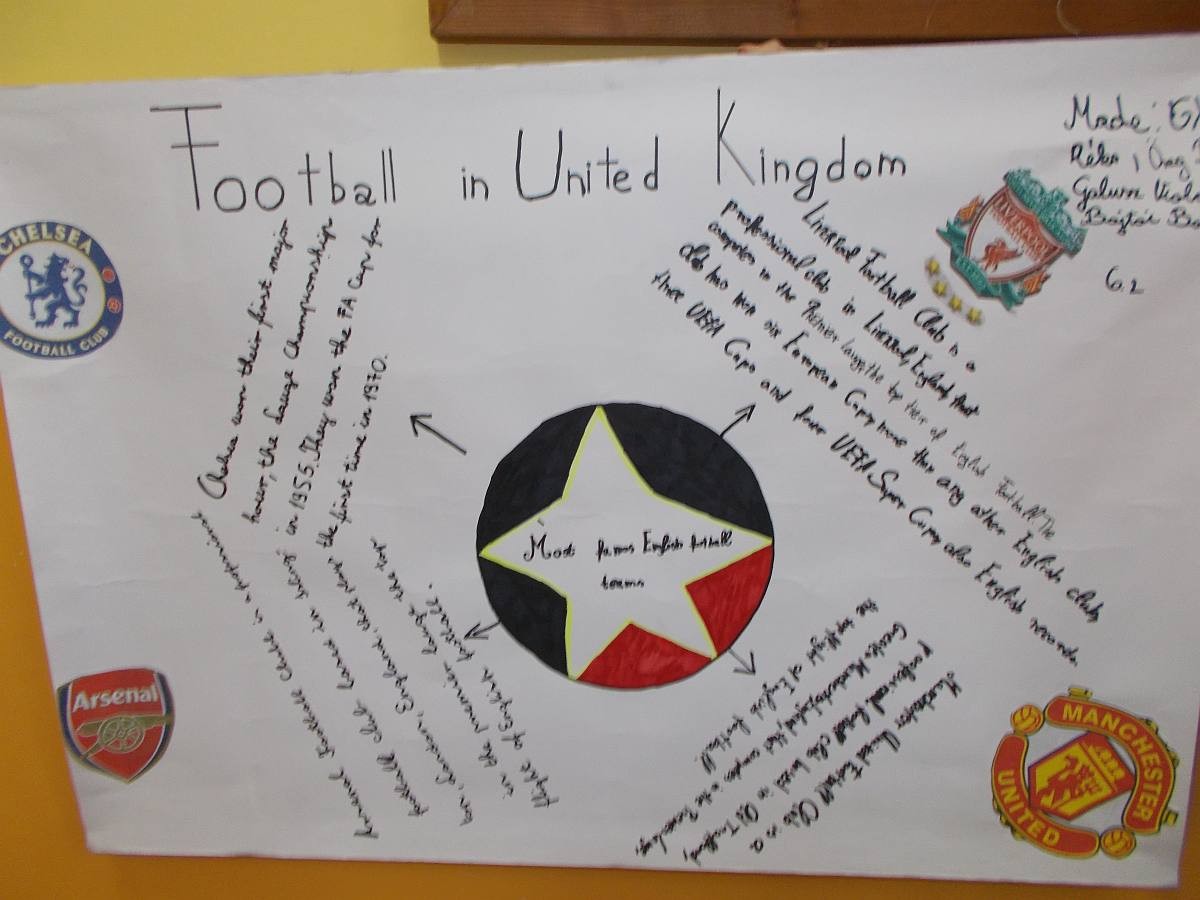 Football in United Kingdom
Made:
Réka,
6.2
CHELSEA
FOOTBALL CLUB
Chelsea won their first major
honour, the League Championship
in 1955. They won the FA Cup for
the first time in 1970.
LIVERPOOL
Liverpool Football Club is a
professional club in Liverpool, England, that
competes in the Premier League, the tier of English Football. The
club has won six European Cups more than any other English club,
three UEFA Cups and four UEFA Super Cups, also English records.
Most famous English football
teams
Arsenal
Arsenal Football Club is a
football club based in
London, England, that plays
in the premier league the top
flight of English football.
MANCHESTER
UNITED
Manchester United Football Club is a
professional football club based in Old Trafford,
Greater Manchester, England, that competes in the
the top flight of English football.